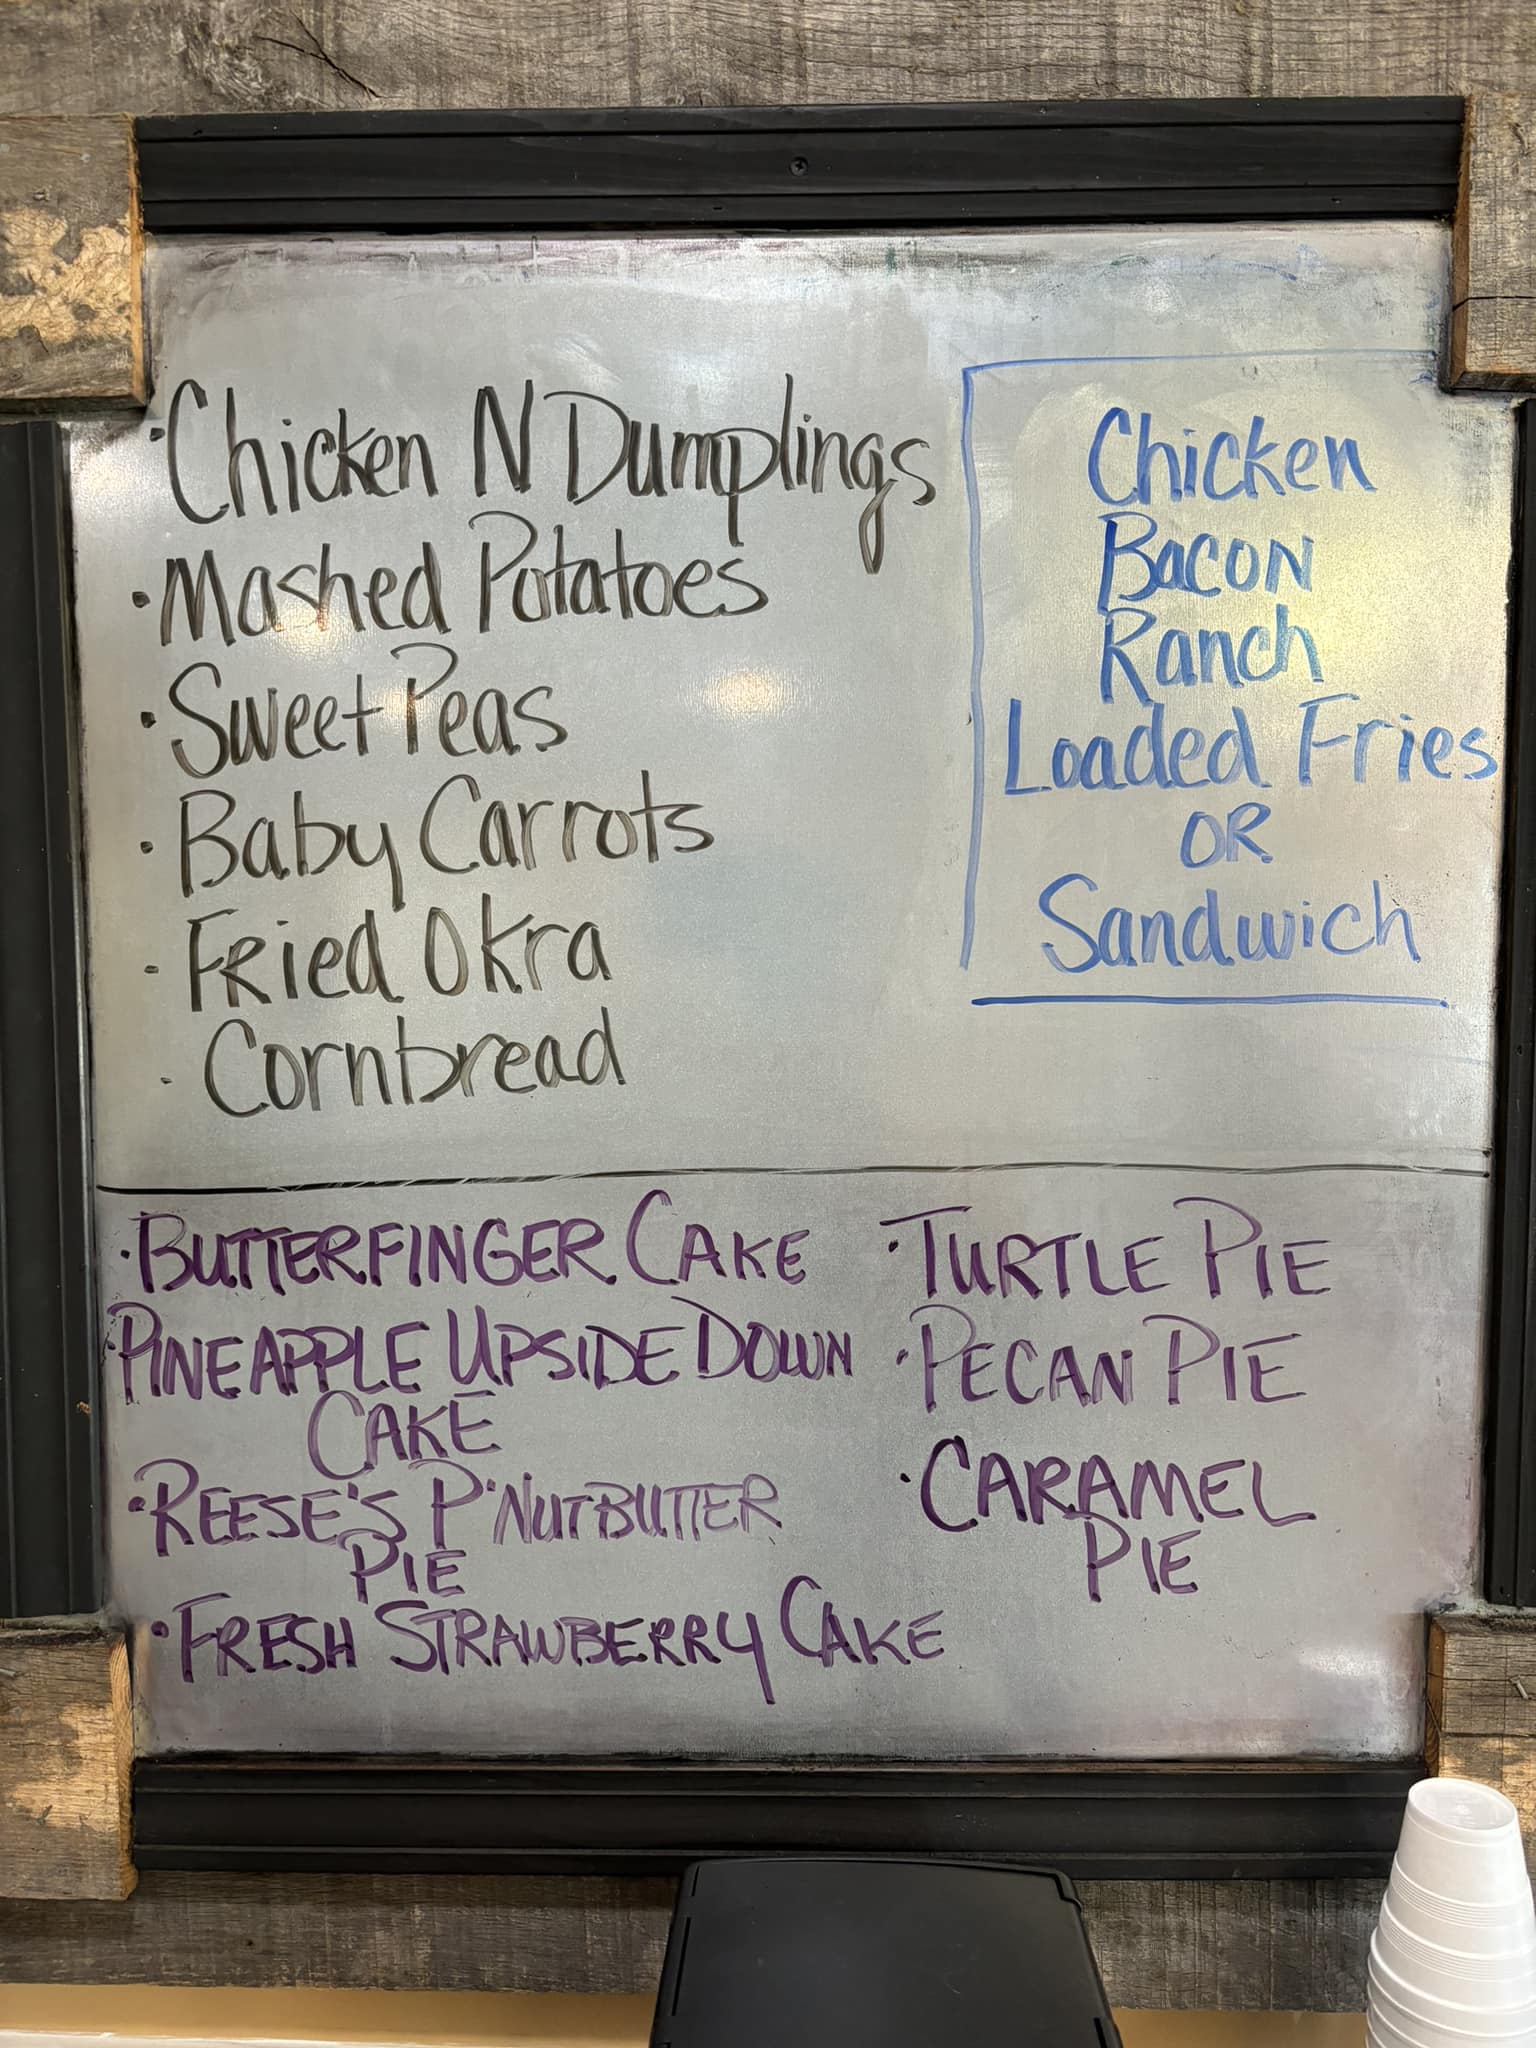 · Chicken N Dumplings
· Mashed Potatoes
· Sweet Peas
· Baby Carrots
· Fried Okra
· Cornbread
Chicken
Bacon
Ranch
Loaded Fries
OR
Sandwich
· BUTTERFINGER CAKE
· PINEAPPLE UPSIDE DOWN
CAKE
· REESE'S P'NUTBUTTER
PIE
· FRESH STRAWBERRY CAKE
· TURTLE PIE
· PECAN PIE
· CARAMEL
PIE